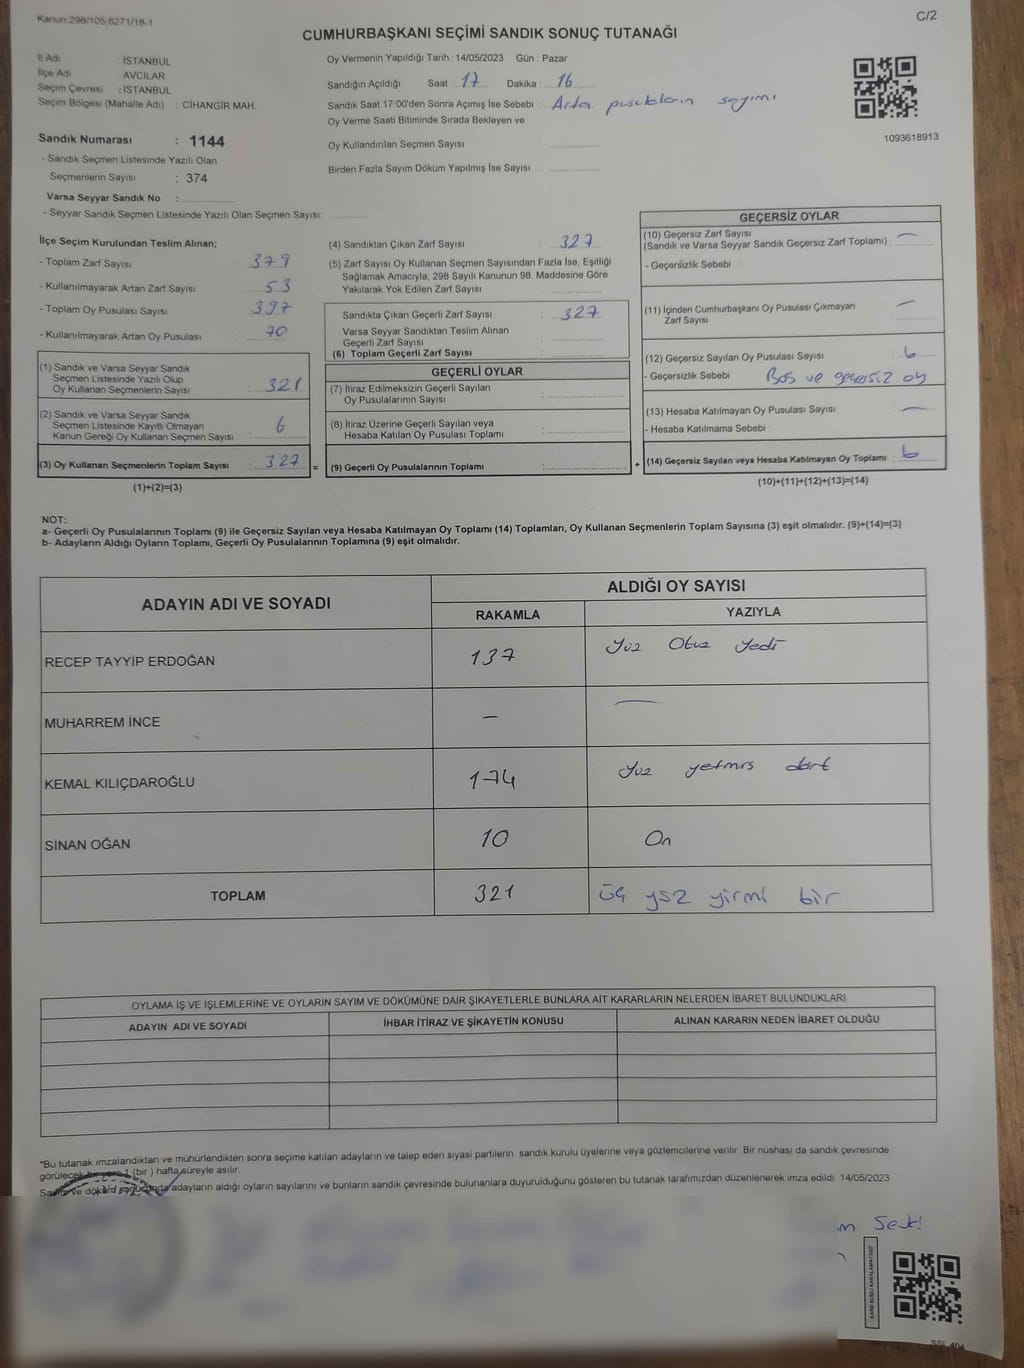 Kanun:298/105,6271/18-1
C/2
CUMHURBAŞKANI SEÇİMİ SANDIK SONUÇ TUTANAĞI
İl Adı : İSTANBUL
İlçe Adı : AVCILAR
Seçim Çevresi : İSTANBUL
Seçim Bölgesi (Mahalle Adı) : CİHANGİR MAH.
Oy Vermenin Yapıldığı Tarih : 14/05/2023 Gün : Pazar
Sandığın Açıldığı Saat : 17 Dakika : 16
Sandık Saat 17:00'den Sonra Açımış İse Sebebi : Artan pusulaların sayımı
Oy Verme Saati Bitiminde Sırada Bekleyen ve
Oy Kullandırılan Seçmen Sayısı :
Birden Fazla Sayım Döküm Yapılmış İse Sayısı :
1093618913
Sandık Numarası : 1144
- Sandık Seçmen Listesinde Yazılı Olan
Seçmenlerin Sayısı : 374
Varsa Seyyar Sandık No :
- Seyyar Sandık Seçmen Listesinde Yazılı Olan Seçmen Sayısı:
İlçe Seçim Kurulundan Teslim Alınan;
- Toplam Zarf Sayısı : 379
- Kullanılmayarak Artan Zarf Sayısı : 53
- Toplam Oy Pusulası Sayısı : 397
- Kullanılmayarak Artan Oy Pusulası : 70
(1) Sandık ve Varsa Seyyar Sandık
Seçmen Listesinde Yazılı Olup
Oy Kullanan Seçmenlerin Sayısı : 321
(2) Sandık ve Varsa Seyyar Sandık
Seçmen Listesinde Kayıtlı Olmayan
Kanun Gereği Oy Kullanan Seçmen Sayısı : 6
(3) Oy Kullanan Seçmenlerin Toplam Sayısı : 327 =
(1)+(2)=(3)
(4) Sandıktan Çıkan Zarf Sayısı : 327
(5) Zarf Sayısı Oy Kullanan Seçmen Sayısından Fazla İse, Eşitliği
Sağlamak Amacıyla, 298 Sayılı Kanunun 98. Maddesine Göre
Yakılarak Yok Edilen Zarf Sayısı :
Sandıkta Çıkan Geçerli Zarf Sayısı : 327
Varsa Seyyar Sandıktan Teslim Alınan
Geçerli Zarf Sayısı :
(6) Toplam Geçerli Zarf Sayısı :
GEÇERLİ OYLAR
(7) İtiraz Edilmeksizin Geçerli Sayılan
Oy Pusulalarının Sayısı :
(8) İtiraz Üzerine Geçerli Sayılan veya
Hesaba Katılan Oy Pusulası Toplamı :
(9) Geçerli Oy Pusulalarının Toplamı : +
GEÇERSİZ OYLAR
(10) Geçersiz Zarf Sayısı
(Sandık ve Varsa Seyyar Sandık Geçersiz Zarf Toplamı) : —
- Geçersizlik Sebebi :
(11) İçinden Cumhurbaşkanı Oy Pusulası Çıkmayan
Zarf Sayısı : —
(12) Geçersiz Sayılan Oy Pusulası Sayısı : 6
- Geçersizlik Sebebi : Boş ve geçersiz oy
(13) Hesaba Katılmayan Oy Pusulası Sayısı : —
- Hesaba Katılmama Sebebi :
(14) Geçersiz Sayılan veya Hesaba Katılmayan Oy Toplamı : 6
(10)+(11)+(12)+(13)=(14)
NOT:
a- Geçerli Oy Pusulalarının Toplamı (9) ile Geçersiz Sayılan veya Hesaba Katılmayan Oy Toplamı (14) Toplamları, Oy Kullanan Seçmenlerin Toplam Sayısına (3) eşit olmalıdır. (9)+(14)=(3)
b- Adayların Aldığı Oyların Toplamı, Geçerli Oy Pusulalarının Toplamına (9) eşit olmalıdır.
ADAYIN ADI VE SOYADI
ALDIĞI OY SAYISI
RAKAMLA YAZIYLA
RECEP TAYYİP ERDOĞAN 137 Yüz Otuz Yedi
MUHARREM İNCE — —
KEMAL KILIÇDAROĞLU 174 Yüz yetmiş dört
SİNAN OĞAN 10 On
TOPLAM 321 üç yüz yirmi bir
OYLAMA İŞ VE İŞLEMLERİNE VE OYLARIN SAYIM VE DÖKÜMÜNE DAİR ŞİKAYETLERLE BUNLARA AİT KARARLARIN NELERDEN İBARET BULUNDUKLARI
ADAYIN ADI VE SOYADI İHBAR İTİRAZ VE ŞİKAYETİN KONUSU ALINAN KARARIN NEDEN İBARET OLDUĞU
*Bu tutanak imzalandıktan ve mühürlendikten sonra seçime katılan adayların ve talep eden siyasi partilerin sandık kurulu üyelerine veya gözlemcilerine verilir. Bir nüshası da sandık çevresinde
görülecek bir yere 1 (bir ) hafta süreyle asılır.
Sayım ve döküm sonucunda adayların aldığı oyların sayılarını ve bunların sandık çevresinde bulunanlara duyurulduğunu gösteren bu tutanak tarafımızdan düzenlenerek imza edildi. 14/05/2023
KARE KODU KARALAMAYINIZ!